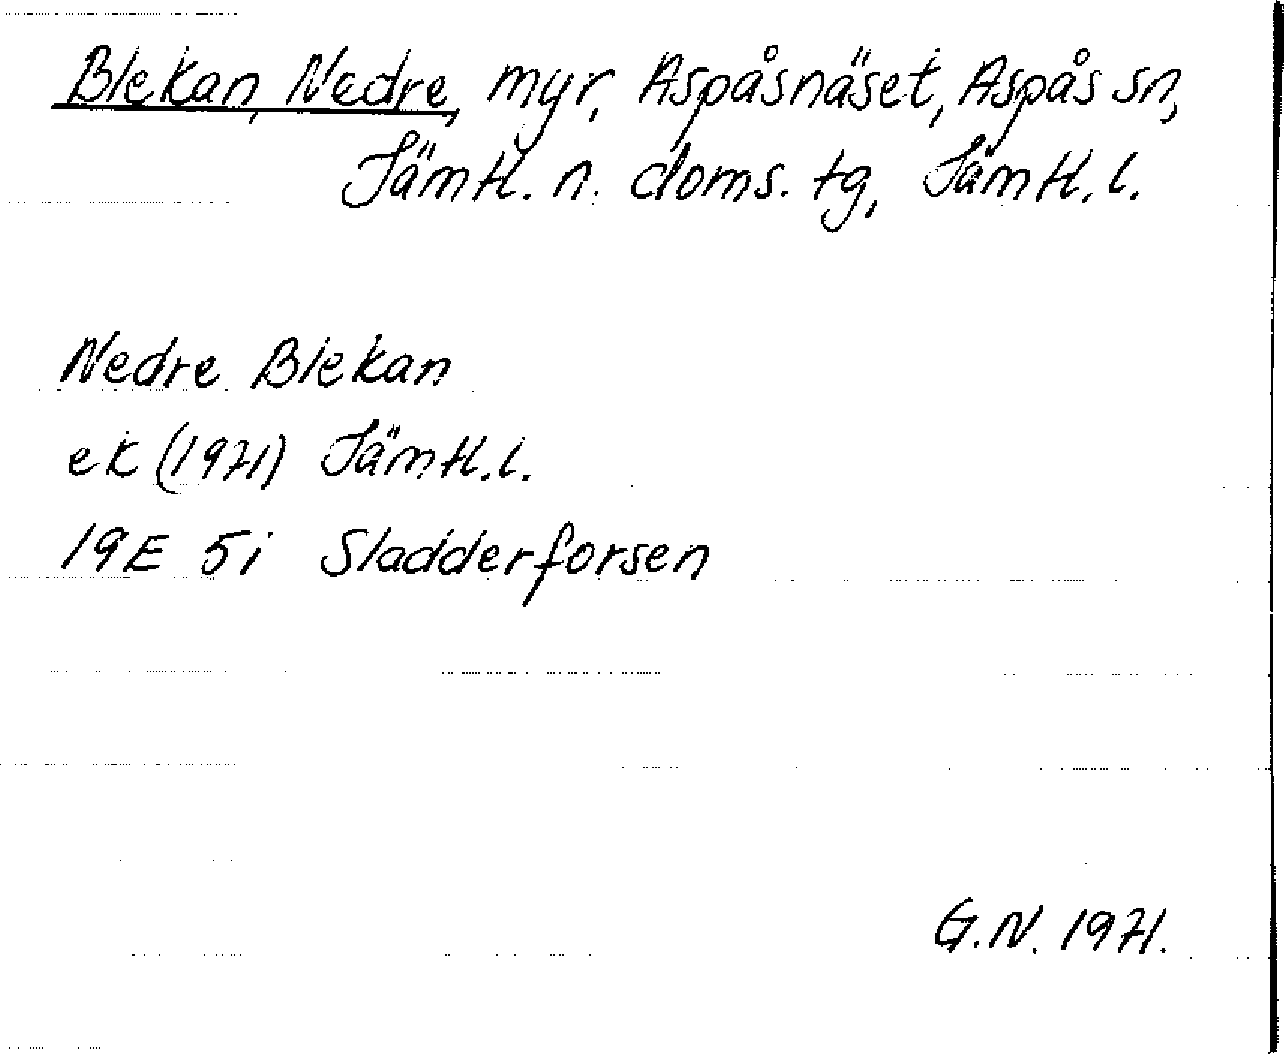 Blekan, Nedre, myr, Aspåsnäset, Aspås sn,
Jämtl. n. doms. tg, Jämtl. l.
Nedre Blekan
ek (1971) Jämtl. l.
19E 5i Sladderforsen
G.N. 1971.